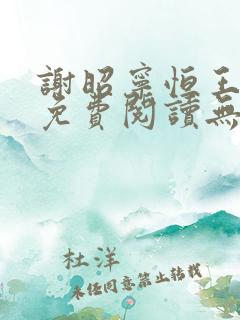 謝昭寧恒王
免費閱讀無
杜洋
未經同意禁止轉載